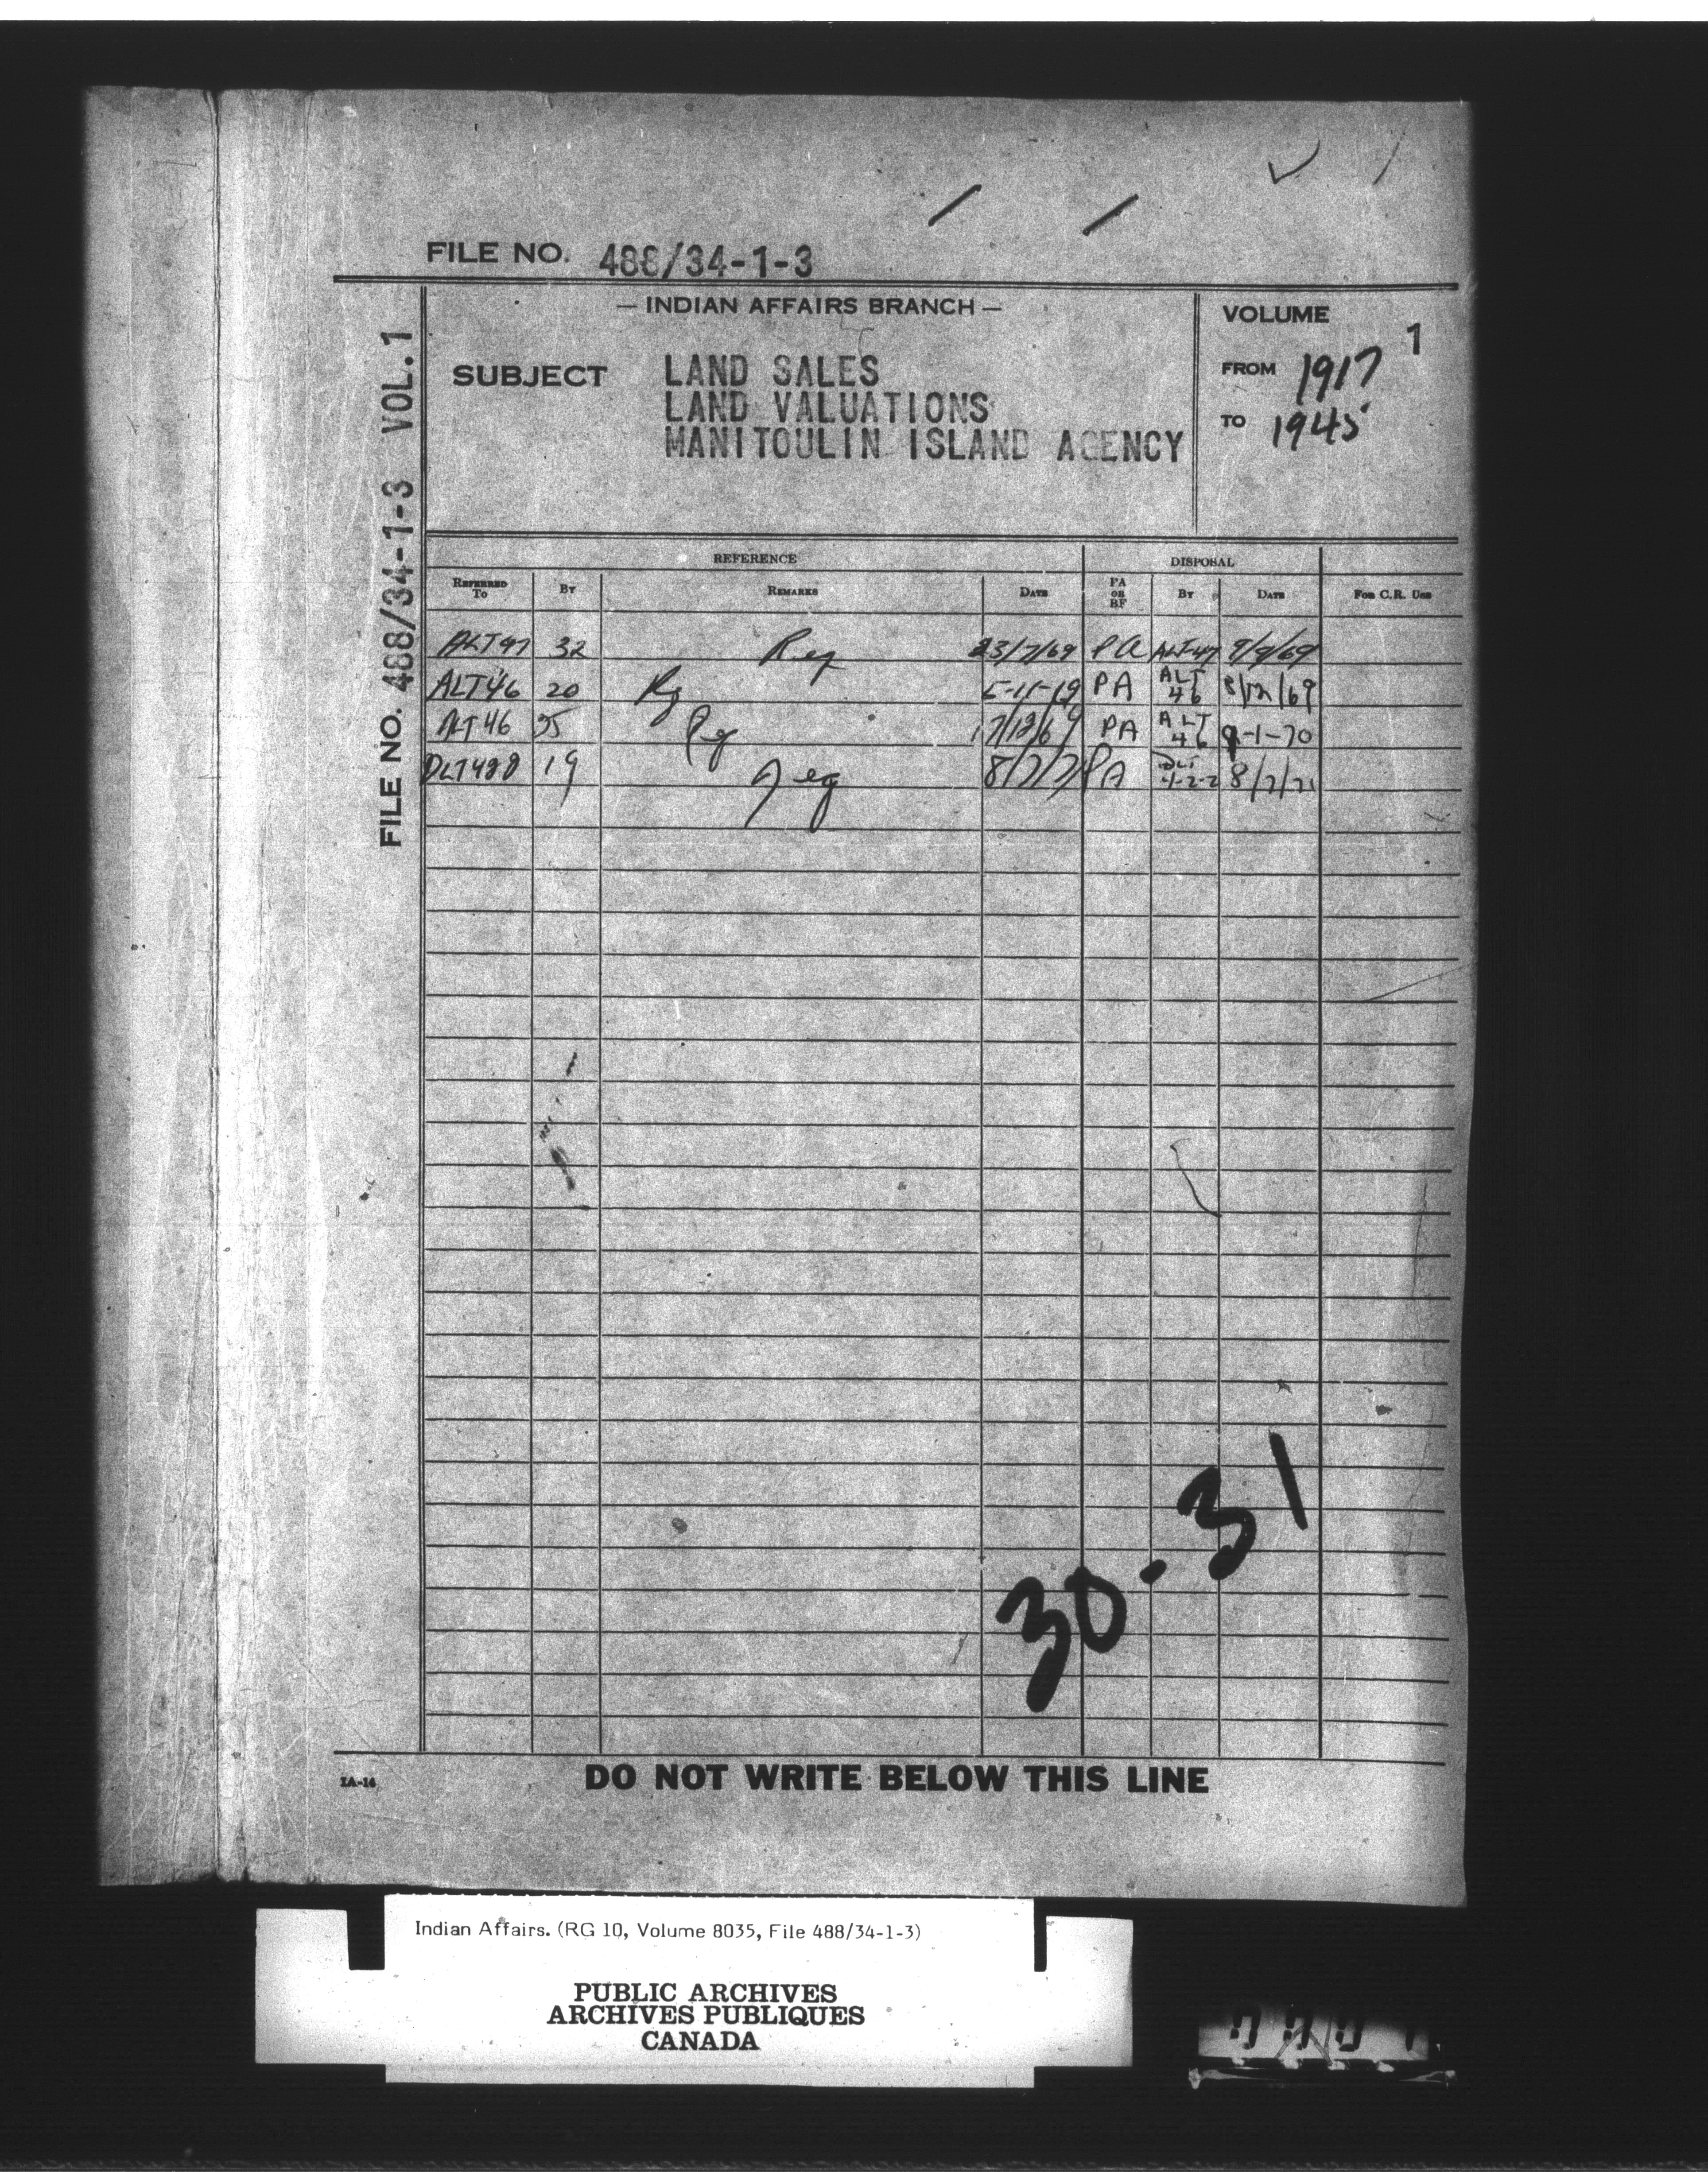 FILE NO. 488/34-1-3
— INDIAN AFFAIRS BRANCH —
SUBJECT LAND SALES
LAND VALUATIONS
MANITOULIN ISLAND AGENCY
VOLUME 1
FROM 1917
TO 1945
FILE NO. 488/34-1-3 VOL. 1
REFERENCE DISPOSAL
REFERRED TO BY REMARKS DATE PA OR BF BY DATE FOR C.R. USE
32 Req 23/7/69 PA 9/9/69
ALT46 20 PA ALT 46 8/12/69
ALT 46 17/12/69 PA ALT 46 9-1-70
19 PA
30-31
IA-14
DO NOT WRITE BELOW THIS LINE
Indian Affairs. (RG 10, Volume 8035, File 488/34-1-3)
PUBLIC ARCHIVES
ARCHIVES PUBLIQUES
CANADA